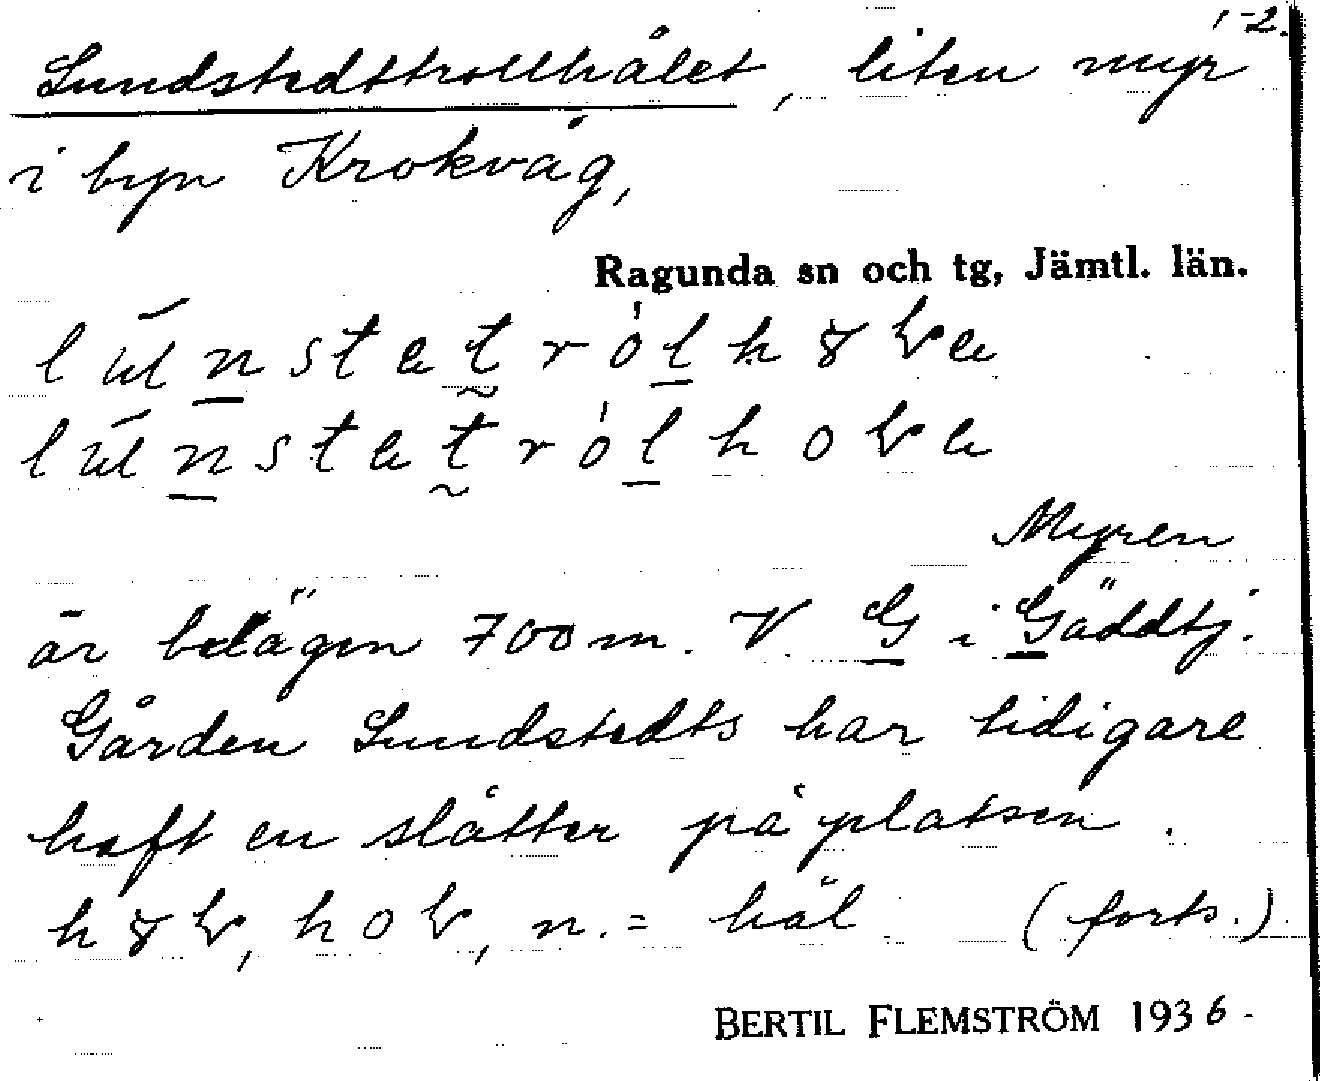 1-2.
Lundstedttrollhålet, liten myr
i byn Krokvåg,
Ragunda sn och tg, Jämtl. län.
Myren
är belägen 700 m. V. G i Gäddtj.
Gården Lundstedts har tidigare
haft en slåtter på platsen.
n. = hål (forts.)
BERTIL FLEMSTRÖM 1936.